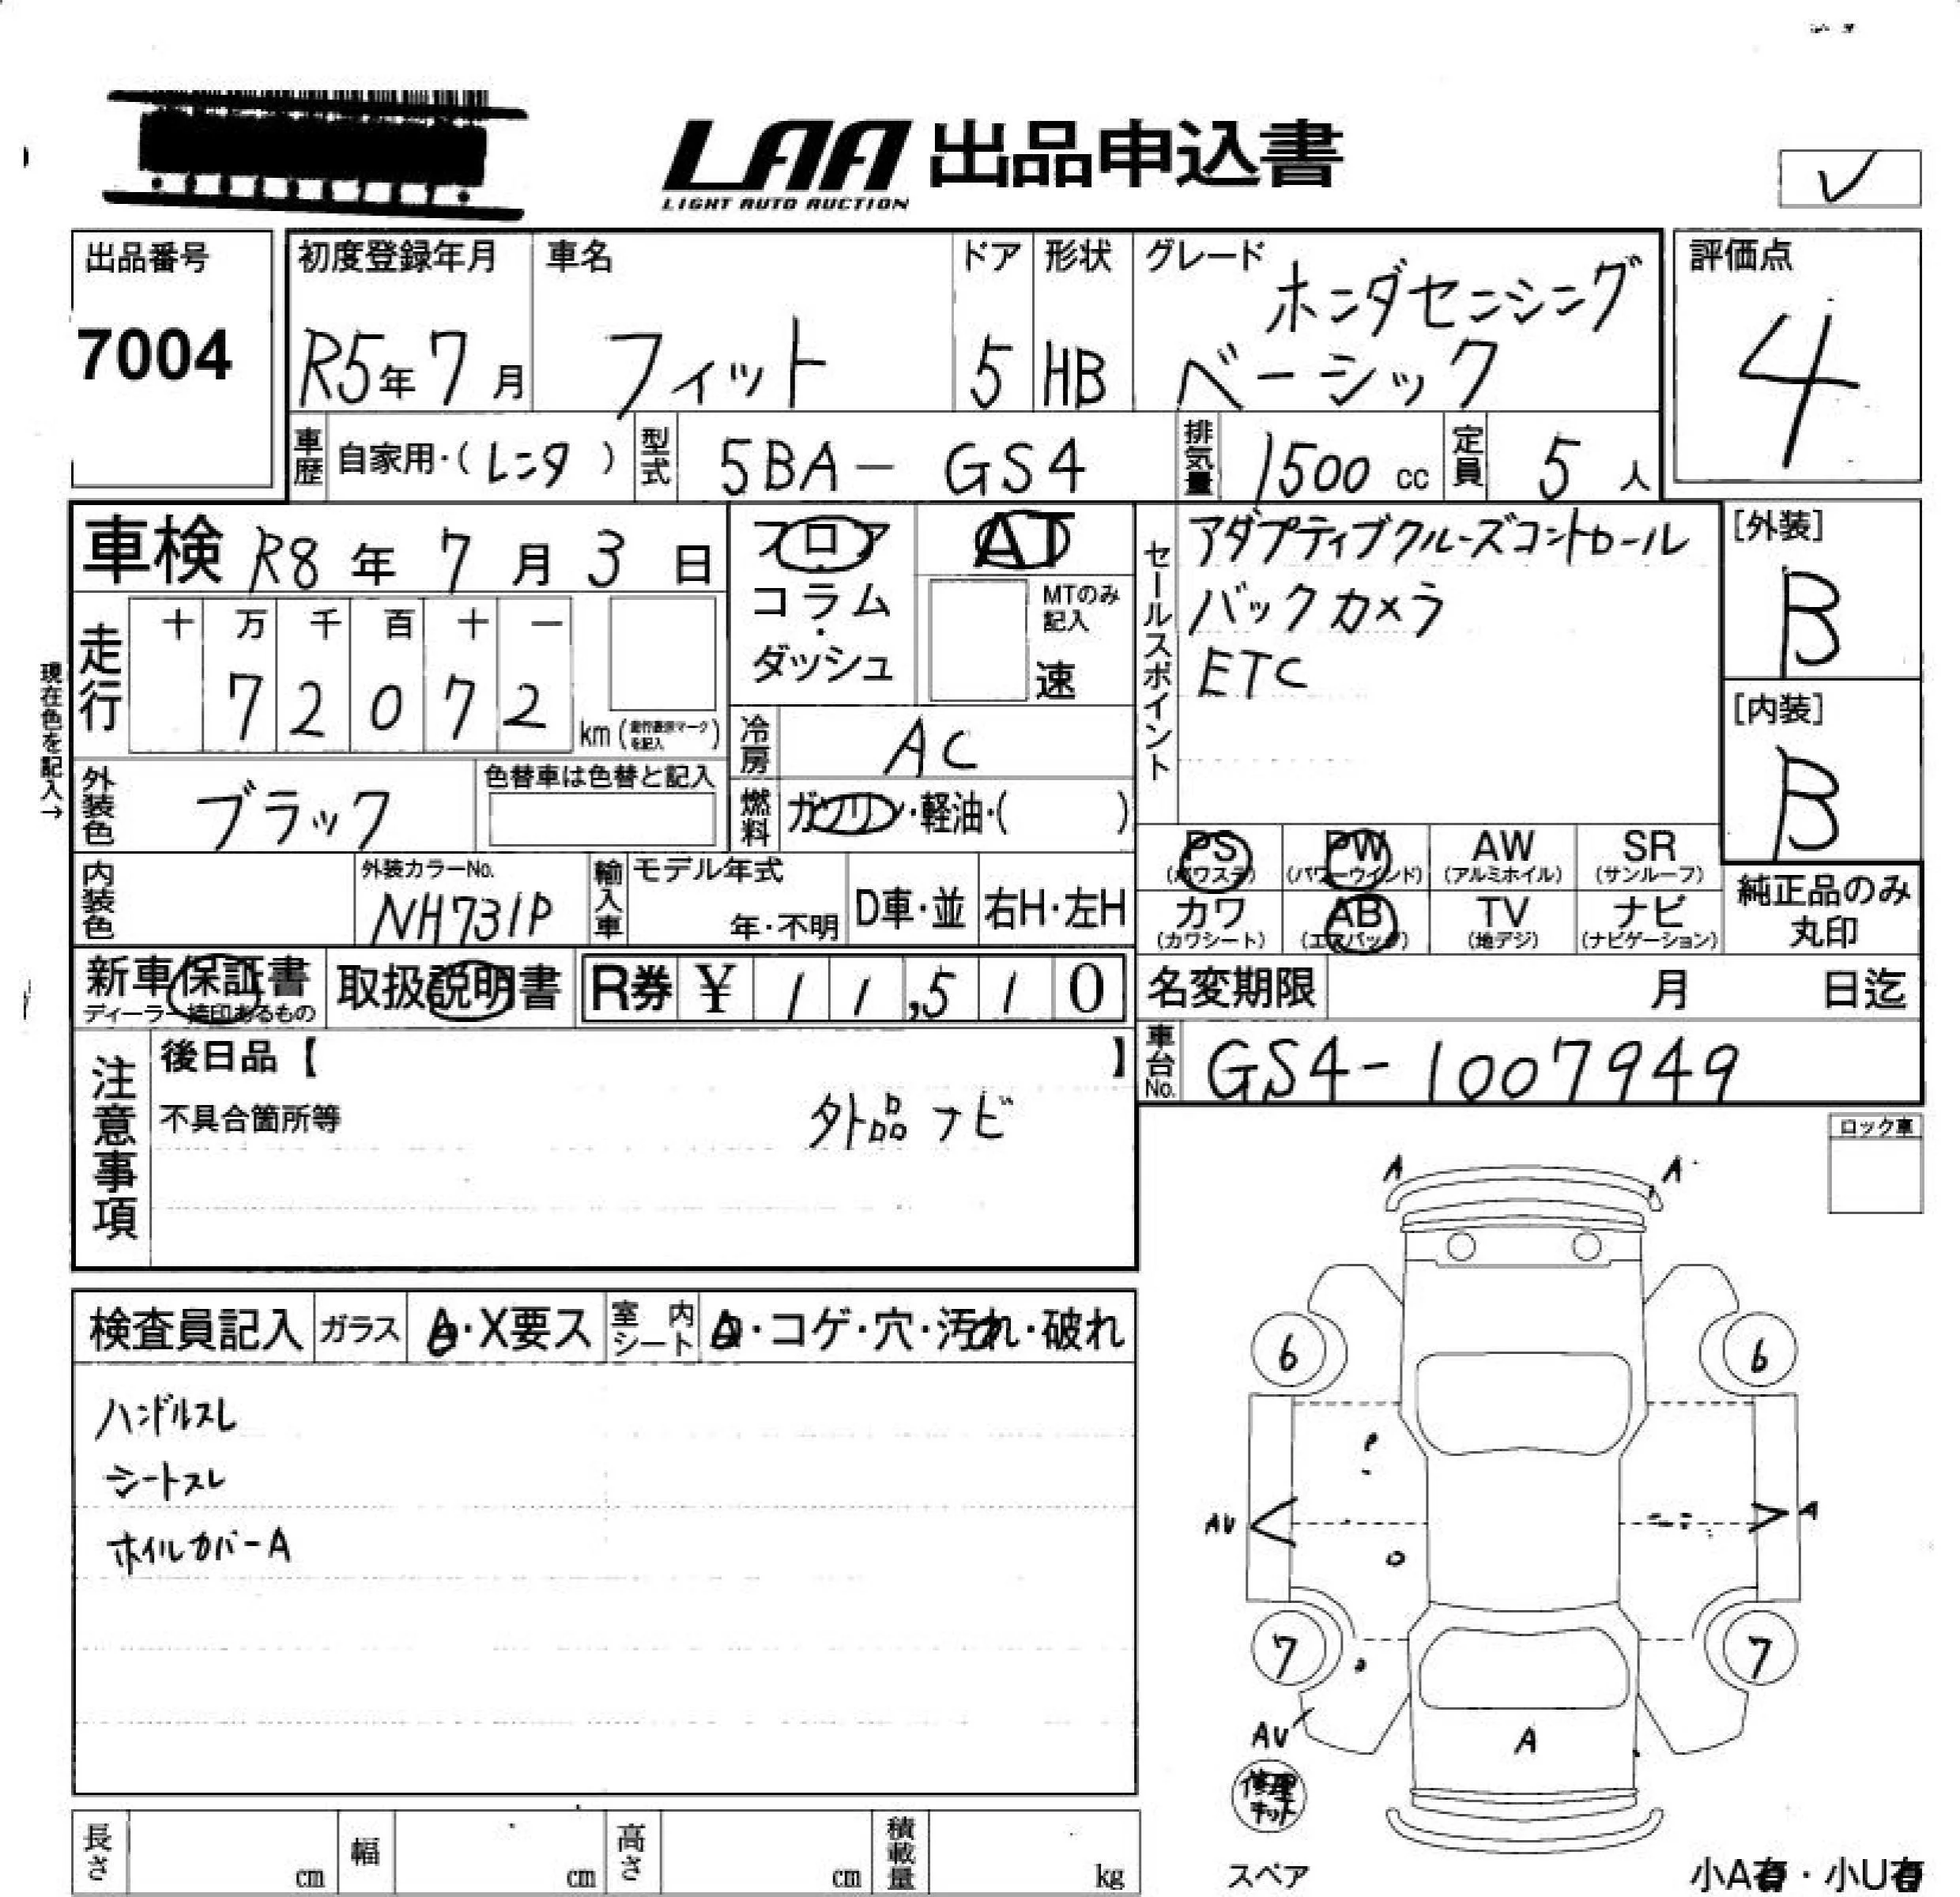 LAA 出品申込書
LIGHT AUTO AUCTION
出品番号
7004
初度登録年月
R5年 7月
車名
フィット
ドア
5
形状
HB
グレード
ホンダセンシング
ベーシック
評価点
4
車歴 自家用・(レンタ)
型式 5BA- GS4
排気量 1500 cc
定員 5 人
車検 R8年 7月 3日
現在色を記入→
走行
十 万 千 百 十 一
7 2 0 7 2
km
外装色 ブラック
色替車は色替と記入
内装色
外装カラーNo.
NH731P
輸入車
モデル年式
年・不明
D車・並
右H・左H
フロア
・
コラム
・
ダッシュ
AT
MTのみ
記入
速
冷房 AC
燃料 ガソリン・軽油・( )
セールスポイント
アダプティブクルーズコントロール
バックカメラ
ETC
[外装]
B
[内装]
B
PS
(パワステ)
PW
(パワーウインド)
AW
(アルミホイル)
SR
(サンルーフ)
カワ
(カワシート)
AB
(エアバッグ)
TV
(地デジ)
ナビ
(ナビゲーション)
純正品のみ
丸印
新車保証書
ディーラー捺印あるもの
取扱説明書
R券 ¥ 1 1,5 1 0
名変期限 月 日迄
車台No. GS4-1007949
注意事項
後日品【 】
不具合箇所等
外品ナビ
ロック車
検査員記入
ガラス
A・X要ス
室内
シート
・コゲ・穴・汚れ・破れ
ハンドルスレ
シートスレ
ホイルカバーA
A
A
6
6
AU
A
7
7
AU
A
修理
キット
スペア
小A有・小U有
長さ cm
幅 cm
高さ cm
積載量 kg